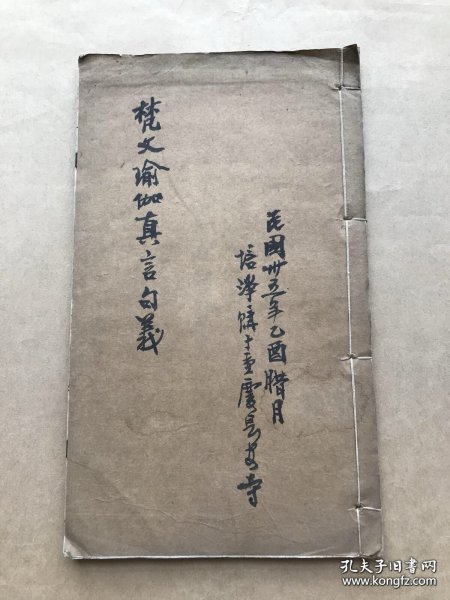 梵文瑜伽真言句義
民國卅五年乙酉腊月
培澤購于重慶長安寺
孔夫子旧书网
www.kongfz.com